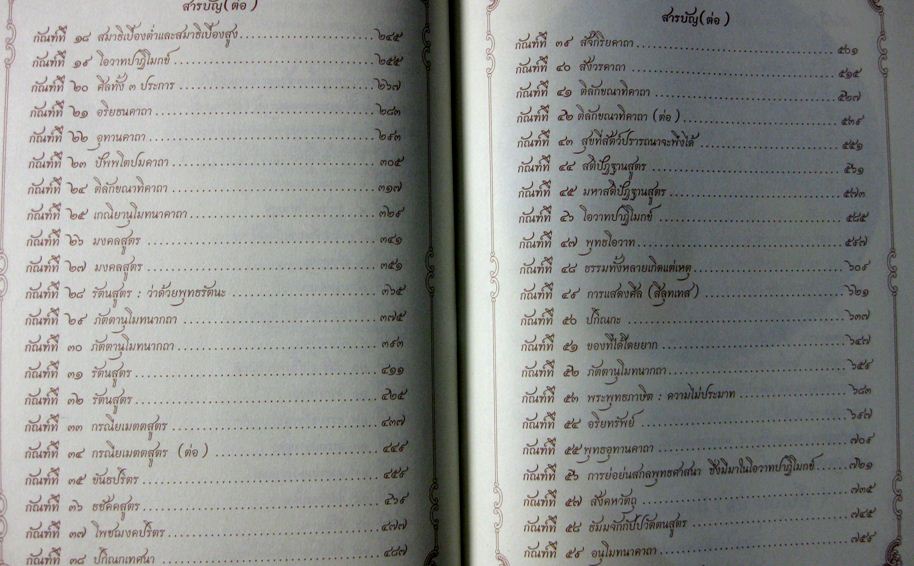 สารบัญ(ต่อ)
กัณฑ์ที่ ๑๘ สมาธิเบื้องต่ำและสมาธิเบื้องสูง ๒๔๕
กัณฑ์ที่ ๑๙ โอวาทปาฏิโมกข์ ๒๕๕
กัณฑ์ที่ ๒๐ ศีลทั้ง ๓ ประการ ๒๖๗
กัณฑ์ที่ ๒๑ อริยธนคาถา ๒๘๓
กัณฑ์ที่ ๒๒ อุทานคาถา ๒๙๓
กัณฑ์ที่ ๒๓ ปัพพโตปมคาถา ๓๐๕
กัณฑ์ที่ ๒๔ ติลักขณาทิคาถา ๓๑๗
กัณฑ์ที่ ๒๕ เกณิยานุโมทนาคาถา ๓๒๙
กัณฑ์ที่ ๒๖ มงคลสูตร ๓๔๑
กัณฑ์ที่ ๒๗ มงคลสูตร ๓๕๑
กัณฑ์ที่ ๒๘ รัตนสูตร : ว่าด้วยพุทธรัตนะ ๓๖๕
กัณฑ์ที่ ๒๙ ภัตตานุโมทนากถา ๓๗๕
กัณฑ์ที่ ๓๐ ภัตตานุโมทนากถา ๓๙๓
กัณฑ์ที่ ๓๑ รัตนสูตร ๔๑๑
กัณฑ์ที่ ๓๒ รัตนสูตร ๔๒๕
กัณฑ์ที่ ๓๓ กรณียเมตตสูตร ๔๓๗
กัณฑ์ที่ ๓๔ กรณียเมตตสูตร (ต่อ) ๔๔๙
กัณฑ์ที่ ๓๕ ขันธปริตร ๔๕๙
กัณฑ์ที่ ๓๖ ธชัคคสูตร ๔๖๙
กัณฑ์ที่ ๓๗ โพชฌงคปริตร ๔๗๗
กัณฑ์ที่ ๓๘ ปกิณกเทศนา ๔๘๗
สารบัญ(ต่อ)
กัณฑ์ที่ ๓๙ สัจกิริยคาถา ๕๐๑
กัณฑ์ที่ ๔๐ สังวรคาถา ๕๑๕
กัณฑ์ที่ ๔๑ ติลักขณาทิคาถา ๕๒๗
กัณฑ์ที่ ๔๒ ติลักขณาทิคาถา (ต่อ) ๕๓๙
กัณฑ์ที่ ๔๓ สุขที่สัตว์ปรารถนาจะพึงได้ ๕๕๑
กัณฑ์ที่ ๔๔ สติปัฏฐานสูตร ๕๖๑
กัณฑ์ที่ ๔๕ มหาสติปัฏฐานสูตร ๕๗๓
กัณฑ์ที่ ๔๖ โอวาทปาฏิโมกข์ ๕๘๕
กัณฑ์ที่ ๔๗ พุทธโอวาท ๕๙๗
กัณฑ์ที่ ๔๘ ธรรมทั้งหลายเกิดแต่เหตุ ๖๐๙
กัณฑ์ที่ ๔๙ การแสดงศีล (สีลุทเทส) ๖๒๑
กัณฑ์ที่ ๕๐ ปกิณกะ ๖๓๗
กัณฑ์ที่ ๕๑ ของที่ได้โดยยาก ๖๔๗
กัณฑ์ที่ ๕๒ ภัตตานุโมทนากถา ๖๕๙
กัณฑ์ที่ ๕๓ พระพุทธภาษิต : ความไม่ประมาท ๖๘๓
กัณฑ์ที่ ๕๔ อริยทรัพย์ ๖๙๗
กัณฑ์ที่ ๕๕ พุทธอุทานคาถา ๗๐๙
กัณฑ์ที่ ๕๖ การย่อย่นสกลพุทธศาสนา ซึ่งมีมาในโอวาทปาฏิโมกข์ ๗๒๑
กัณฑ์ที่ ๕๗ สังคหวัตถุ ๗๓๕
กัณฑ์ที่ ๕๘ ธัมมจักกัปปวัตตนสูตร ๗๔๕
กัณฑ์ที่ ๕๙ อนุโมทนาคาถา ๗๕๙